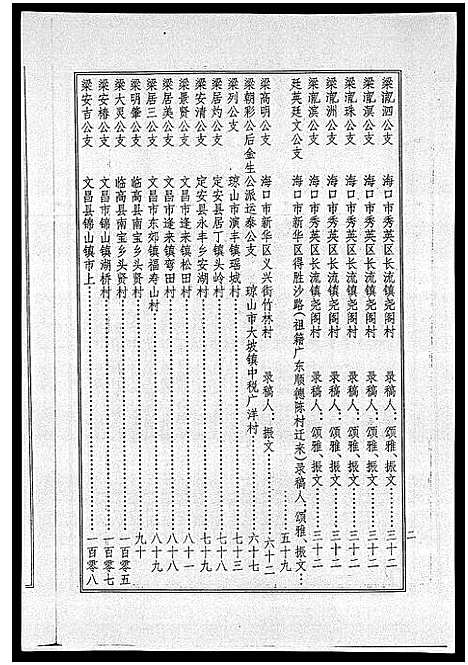 梁𣿰泗公支 海口市秀英区长流镇尧阁村 录稿人：颂雅、振文……三十二
梁𣿰溟公支 海口市秀英区长流镇尧阁村 录稿人：颂雅、振文……三十二
梁𣿰珠公支 海口市秀英区长流镇尧阁村 录稿人：颂雅、振文……三十二
梁𣿰洲公支 海口市秀英区长流镇尧阁村 录稿人：颂雅、振文……三十二
梁𣿰滨公支 海口市秀英区长流镇尧阁村 录稿人：颂雅、振文……三十二
廷英廷文公支 海口市新华区得胜沙路(祖籍广东顺德陈村迁来)录稿人：颂雅、振文…五十九
梁高明公支 海口市新华区义兴街竹林村 录稿人：振文……六十二
梁朝彩公后金生公派运泰公支 琼山市大坡镇中税广洋村……六十七
梁列公支 琼山市演丰镇瑶城村……七十三
梁居灼公支 定安县居丁镇头岭村……七十八
梁安清公支 定安县永丰乡安湖村……七十九
梁景贤公支 文昌市蓬来镇松田村……八十一
梁居美公支 文昌市逢来镇弯田村……八十八
梁居三公支 文昌市东郊镇福寿山村……八十九
梁明肇公支 临高县南宝乡头贤村……九十
梁大灵公支 临高县南宝乡头贤村……一百零五
梁安椿公支 文昌县锦山镇湖桥村……一百零七
梁安吉公支 文昌县锦山镇市上……一百零八
二